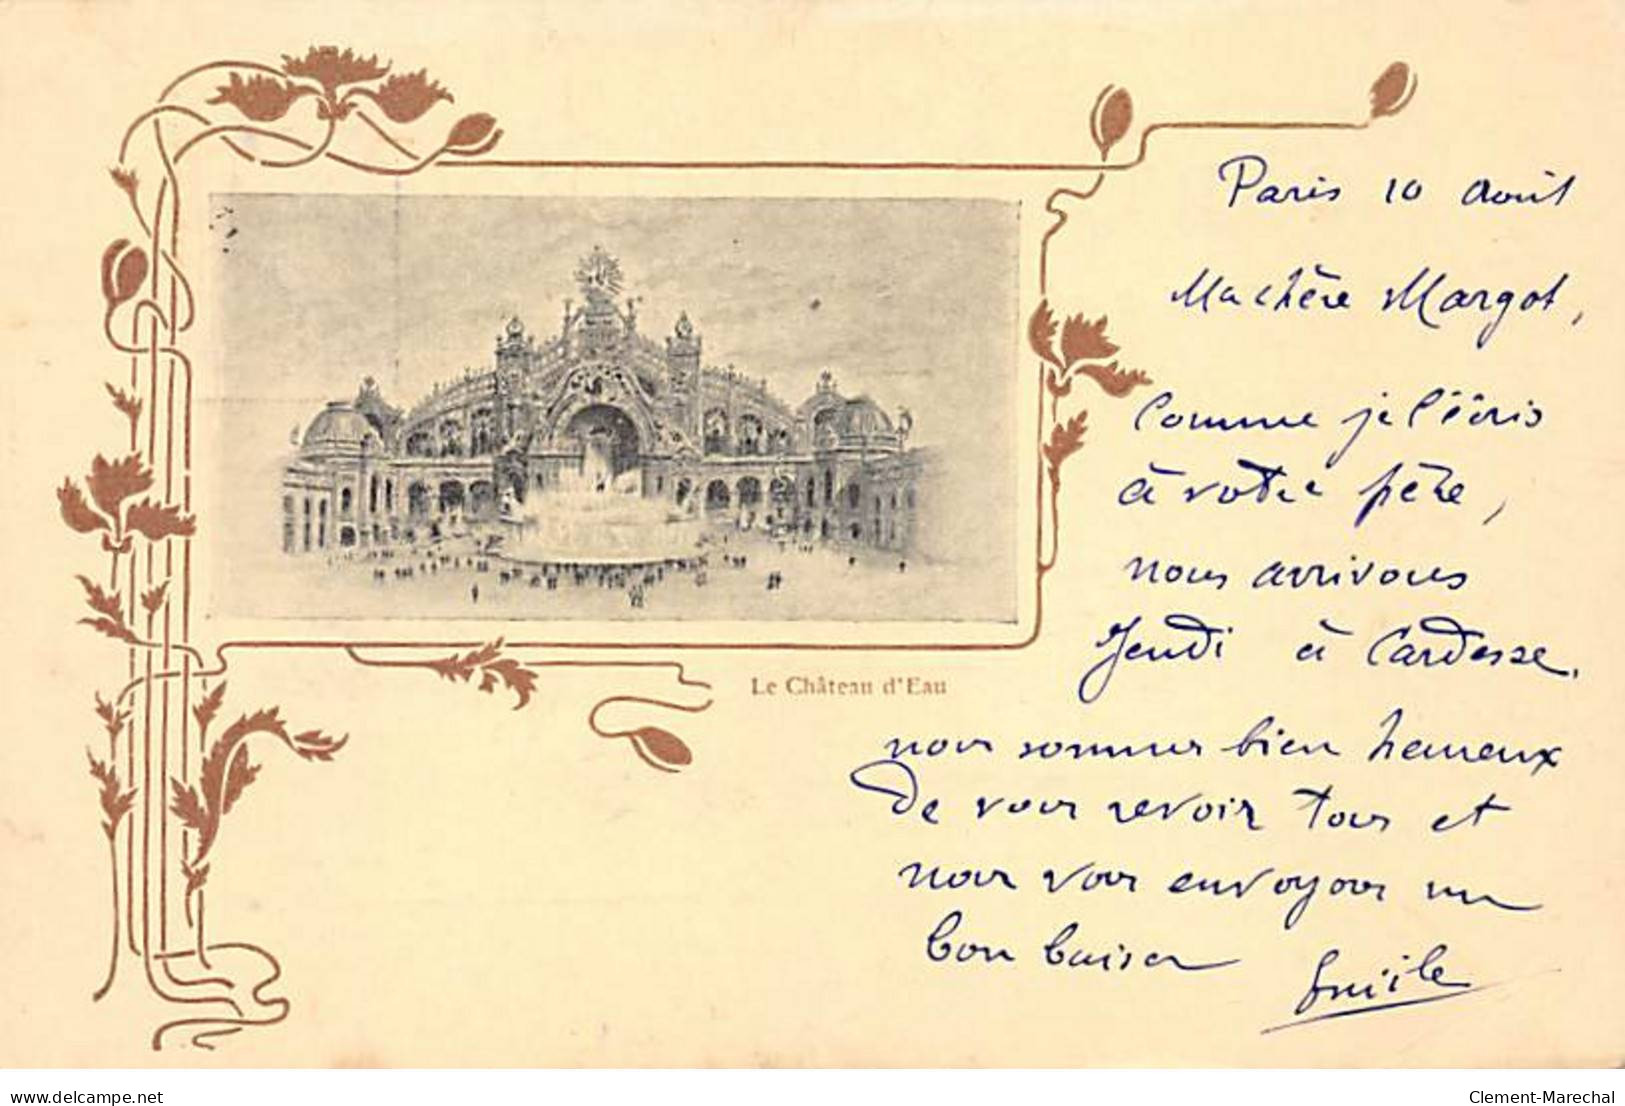 Paris 10 août
Ma chère Margot,
Comme je l'écris
à votre père,
nous arrivons
Jeudi à Cardesse.
nous sommes bien heureux
de vous revoir tous et
nous vous envoyons un
bon baiser Emile
Le Château d'Eau
www.delcampe.net
Clement-Marechal